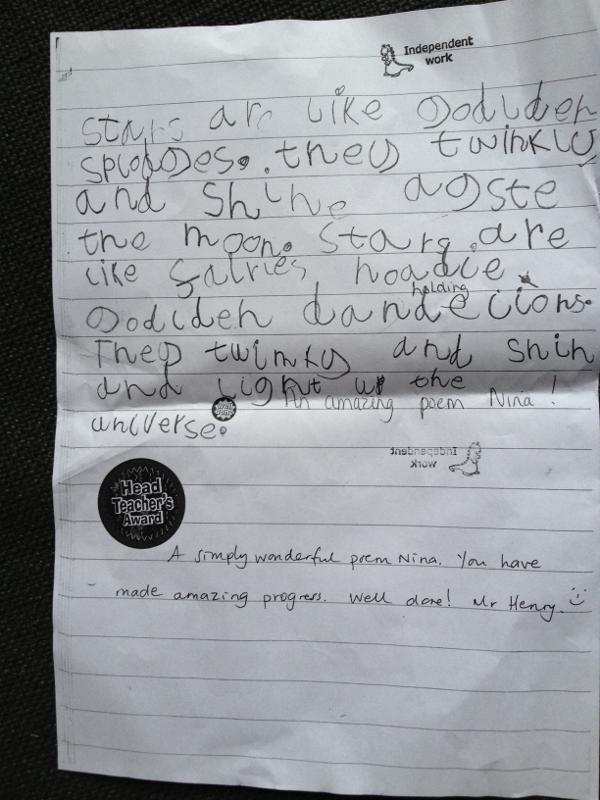 Independent
work
stars are like godlden
splodges. they twinkly
and shine agste
the moon. stars are
like fairies hoadie
holding
godlden dandelions.
They twinky and shin
and light up the
An amazing poem Nina!
universe.
Independent
work
Head
Teacher's
Award
A simply wonderful poem Nina. You have
made amazing progress. Well done! Mr Henry. :)